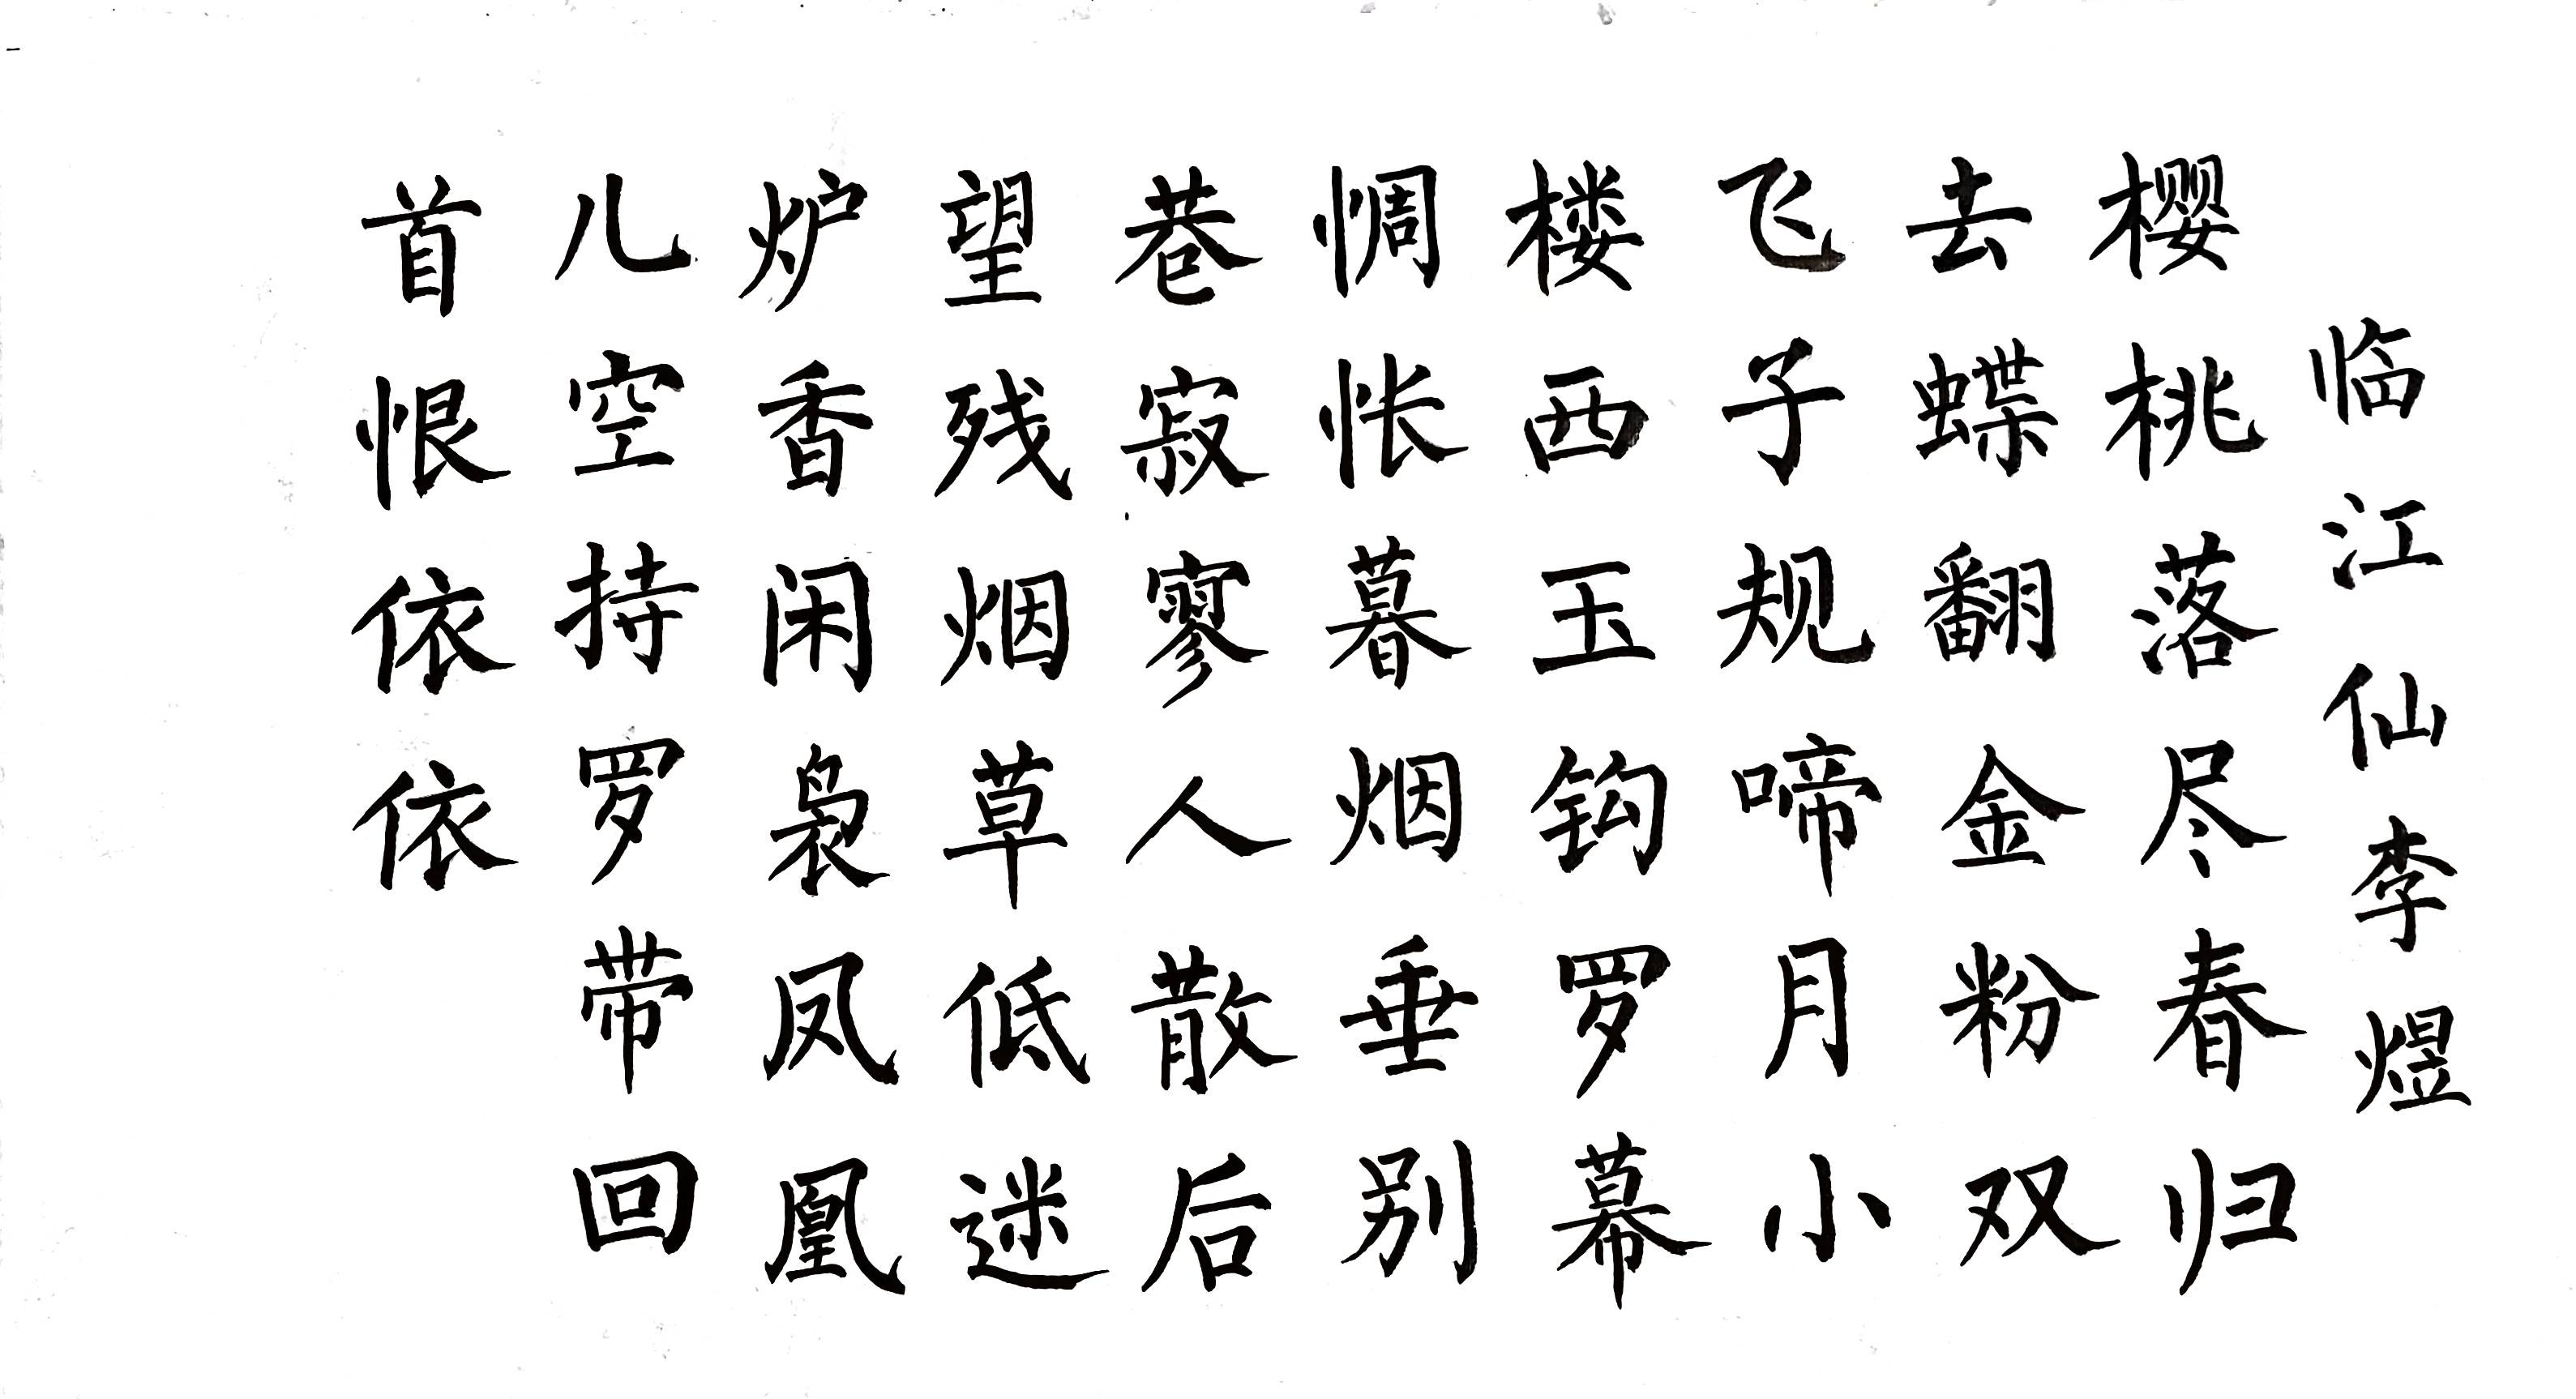 临江仙李煜
樱桃落尽春归
去蝶翻金粉双
飞子规啼月小
楼西玉钩罗幕
惆怅暮烟垂别
巷寂寥人散后
望残烟草低迷
炉香闲袅凤凰
儿空持罗带回
首恨依依